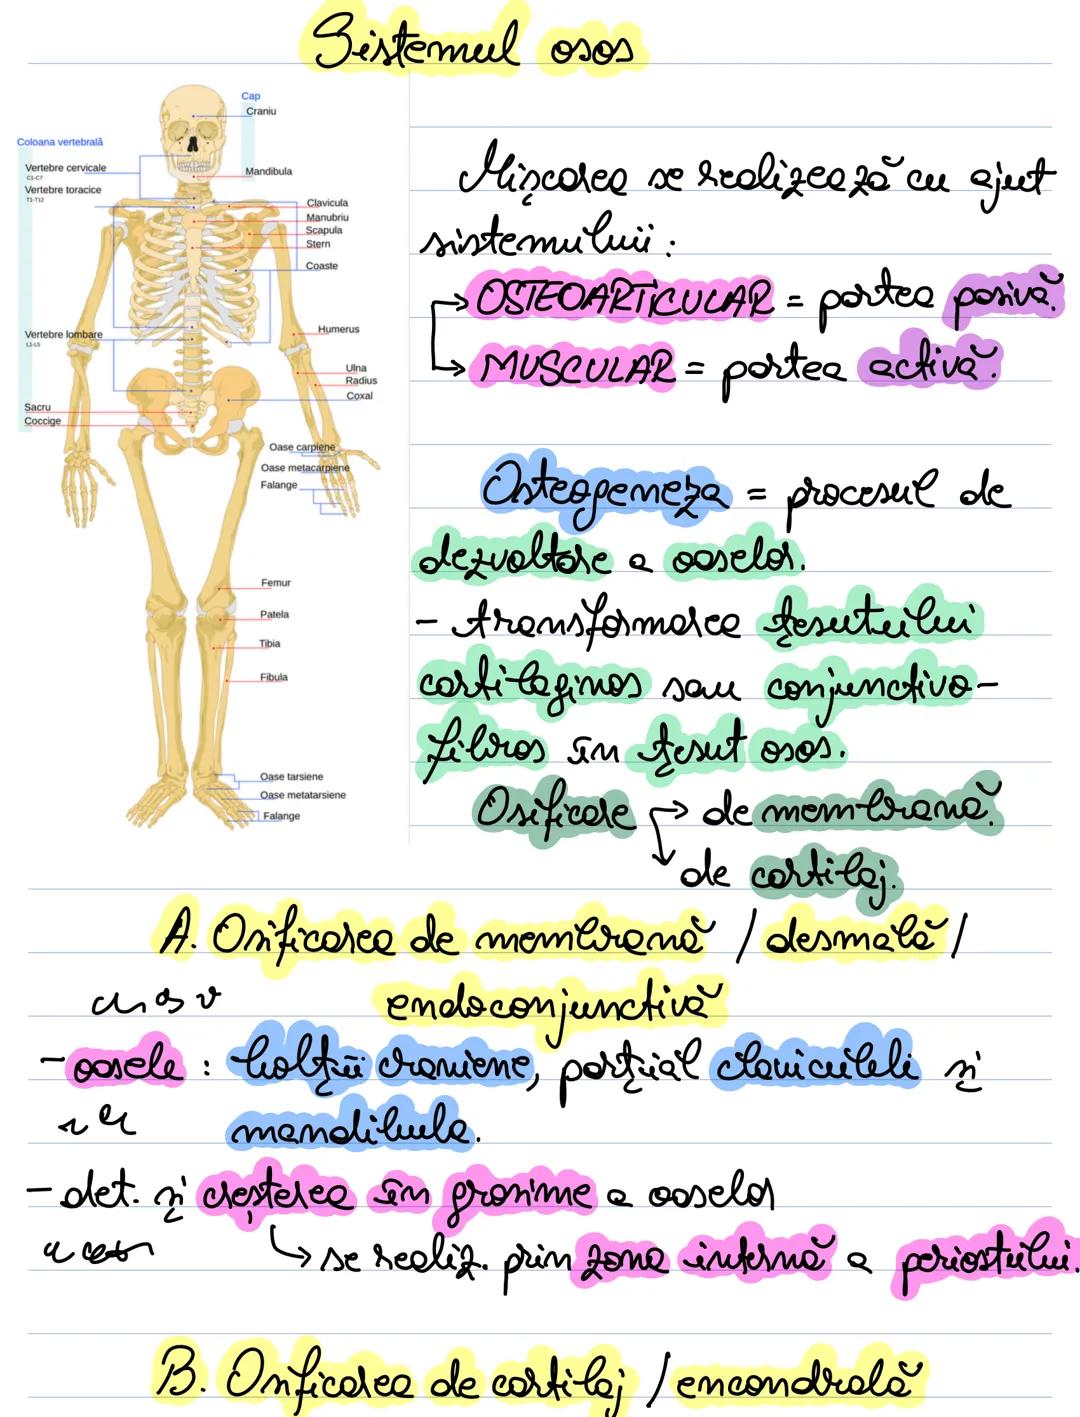 Sistemul osos
Cap
Craniu
Coloana vertebrală
Vertebre cervicale
C1-C7
Mandibula
Vertebre toracice
T1-T12
Clavicula
Manubriu
Scapula
Stern
Coaste
Vertebre lombare
L1-L5
Humerus
Ulna
Radius
Coxal
Sacru
Coccige
Oase carpiene
Oase metacarpiene
Falange
Femur
Patela
Tibia
Fibula
Oase tarsiene
Oase metatarsiene
Falange
Mișcarea se realizează cu ajut
sistemului:
→ OSTEOARTICULAR = partea pasivă.
→ MUSCULAR = partea activă.
Osteogeneza = procesul de
dezvoltare a oaselor.
- transformarea țesutului
cartilaginos sau conjunctivo-
fibros în țesut osos.
Osificare → de membrană.
de cartilaj.
A. Osificarea de membrană / desmală /
endoconjunctivă
- oasele : bolții craniene, parțial claviculeli și
mandibula.
- det. și creșterea în grosime a oaselor
↳ se realiz. prin zona internă a periostului.
B. Osificarea de cartilaj / encondrală